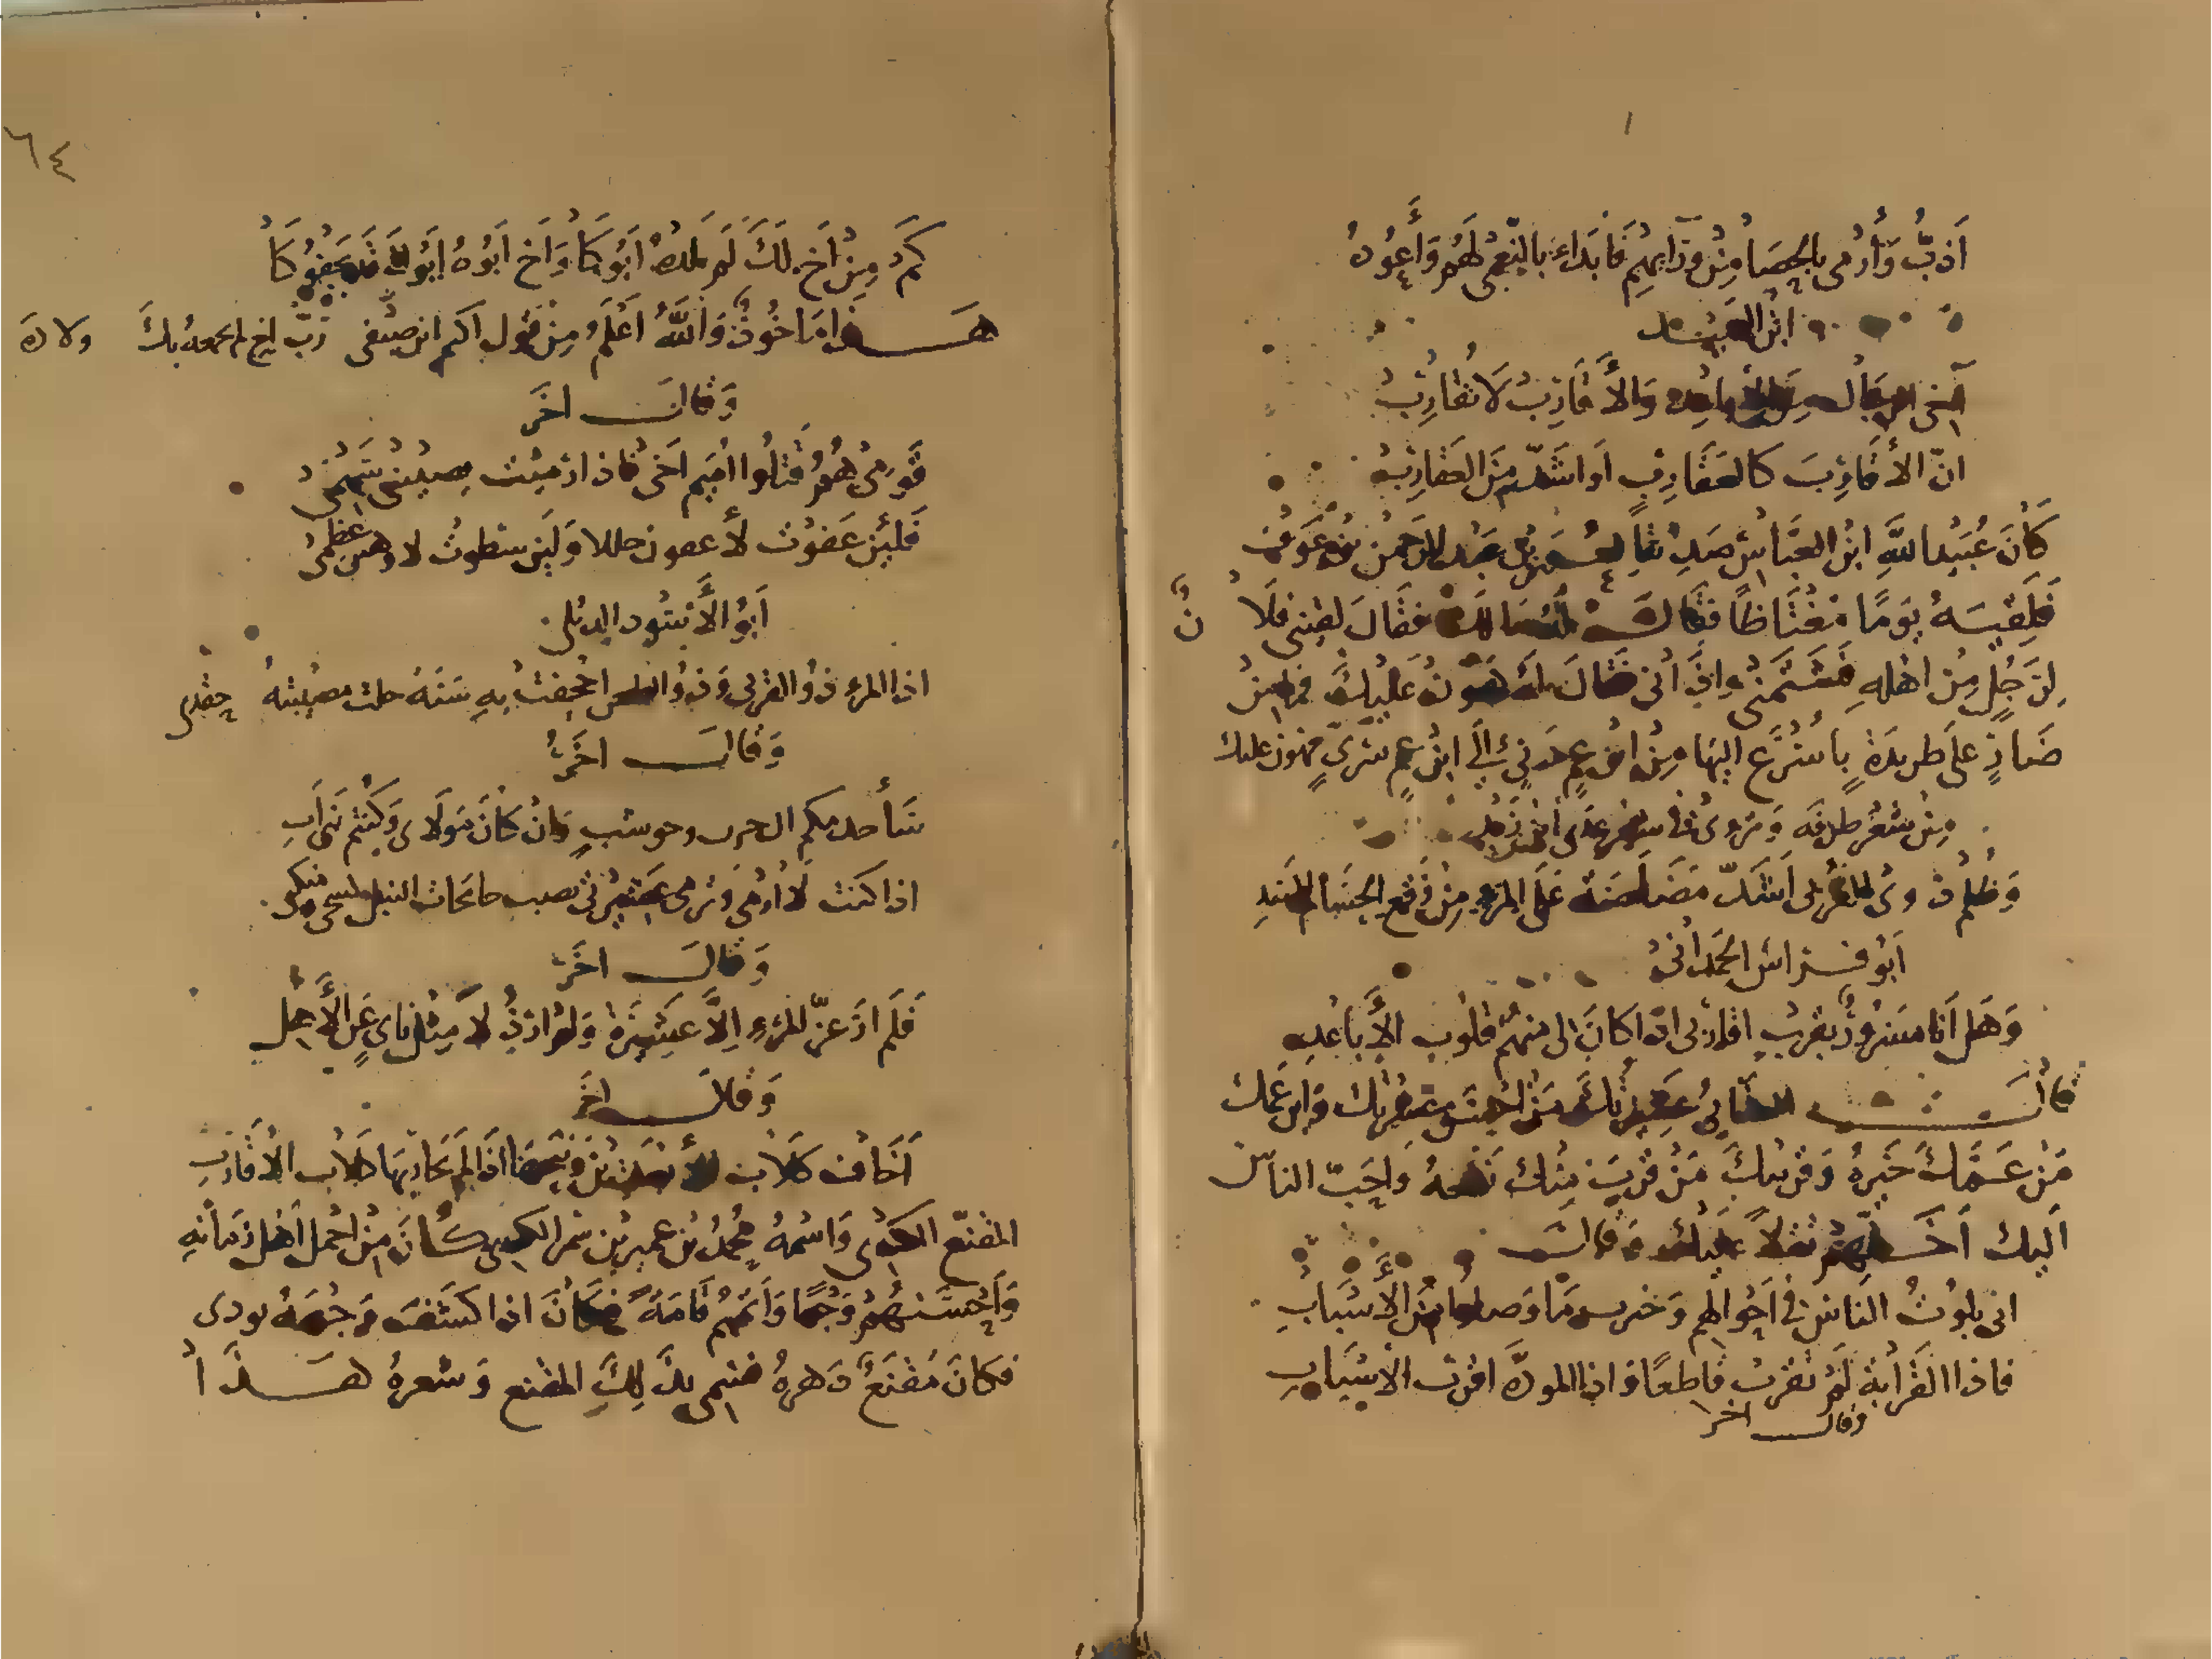 أذبّ وأرمى بالحصا من ورآيهم فابداء بالنعمى لهم وأعود
ابن العميد
آخى الرجال من الأباعد والأقارب لا تقارب
انّ الأقارب كالعقارب أو اشدّ من العقارب
كان عبيد الله ابن العباس صديقا لعمر بن عبد الرحمن بن عوف
فلقيه يوما مغتاظا فقال مالك فقال لقينى فلان
رجل من اهله فشتمنى واذانى فقال له هون عليك فما من
ضار على طريدة باسرع اليها من ابن عم دنى إلى ابن عم سرى فهون عليك
من شعر طرفة ويروى فى شعر عدى ابن زيد
وظلم ذوى القربى اشدّ مضاضة على المرء من وقع الحسام المهند
أبو فراس الحمدانى
وهل أنا مسرور بقرب اقاربى اذا كان لى منهم قلوب الأباعد
قال العتابى عشيرتك من احسن عشرتك وابن عمك
من عمّك خيره وقريبك من قرب منك نفعه واحبّ الناس
اليك أخفهم ثقلا عليك وقال
انى بلوت الناس فى احوالهم وخبرت ما وصلوا من الأسباب
فاذا القرابة لم تقرب قاطعا واذا المودّة اقرب الأسباب
وقال اخر
٦٤
كم من أخ لك لم يلده أبوكا وأخ أبوه أبوك قد يجفوكا
هذا ماخوذ والله أعلم من قول اكثم ابن صيفى ربّ اخ لم تجمعه بك ولادة
وقال اخر
قومى هم قتلوا اميم اخى فاذا رميت يصيبنى سهمى
فلئن عفوت لأعفون جللا ولئن سطوت لاوهنن عظمى
أبو الأسود الديلى
اذا المرء ذو القربى وذو الضغن اجحفت به سنة حلت مصيبته حقدى
وقال اخر
سأخذ منكم ال حزن وحوشب وان كان مولاى وكنتم بنى أب
اذا كنت لا أرمى وترمى عشيرتى تصب جانحات النبل كشحى ومنكبى
وقال اخر
فلم ار عزّ المرء إلا عشيرة ولم ار ذلا مثل نأى عن الأهل
وقال اخر
أخاف كلاب الأبعدين ونبحها اذا لم تجاوبها كلاب الأقارب
المقنّع الكندى واسمه محمد بن عمير بن شمر الكندى كان من اجمل أهل زمانه
وأحسنهم وجها وأتمهم قامة فكان اذا كشف وجهه يوذى
فكان مقنعا دهره فسمى بذلك المقنع وشعره هذا